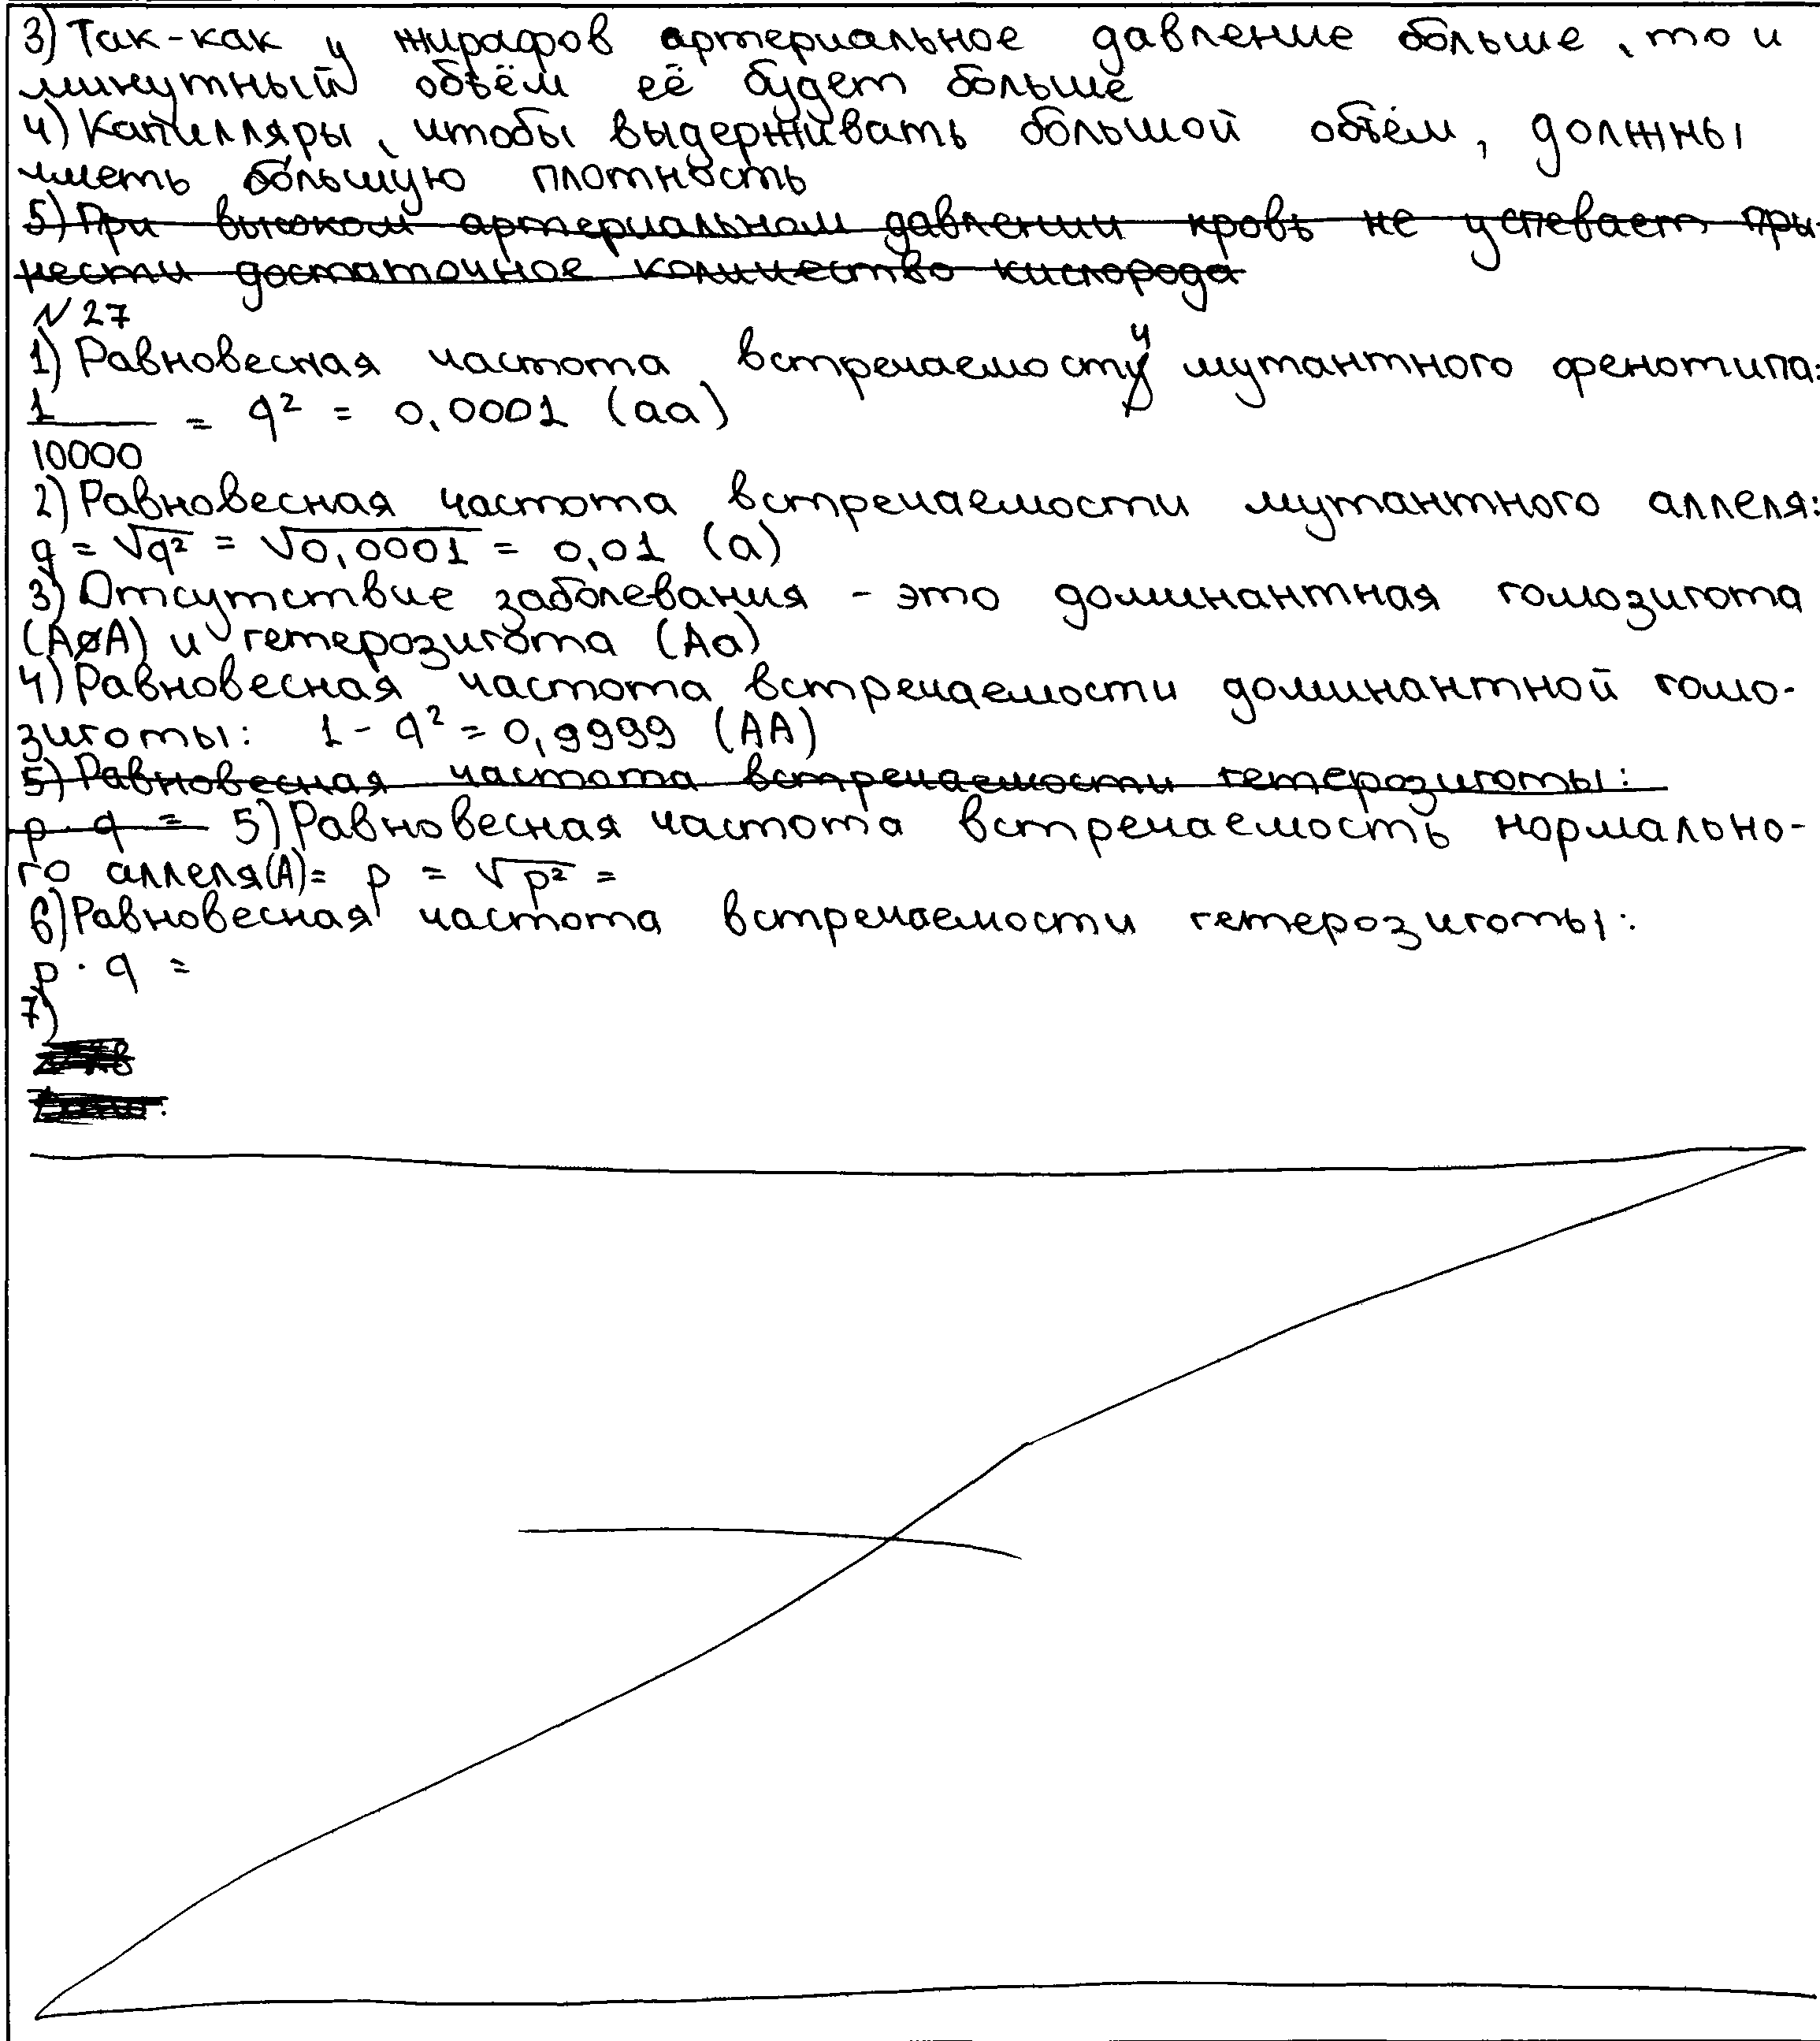 3) Так-как у жирафов артериальное давление больше, то и
минутный объём её будет больше
4) Капилляры, чтобы выдерживать большой объём, должны
иметь большую плотность
5) При высоком артериальном давлении кровь не успевает при-
нести достаточное количество кислорода
№27
1) Равновесная частота встречаемости мутантного фенотипа:
1/10000 = q² = 0,0001 (aa)
2) Равновесная частота встречаемости мутантного аллеля:
q = √q² = √0,0001 = 0,01 (a)
3) Отсутствие заболевания - это доминантная гомозигота
(AA) и гетерозигота (Aa)
4) Равновесная частота встречаемости доминантной гомо-
зиготы: 1 - q² = 0,9999 (AA)
5) Равновесная частота встречаемости гетерозиготы:
p · q = 5) Равновесная частота встречаемость нормально-
го аллеля(A)= p = √p² =
6) Равновесная частота встречаемости гетерозиготы:
p · q =
7)